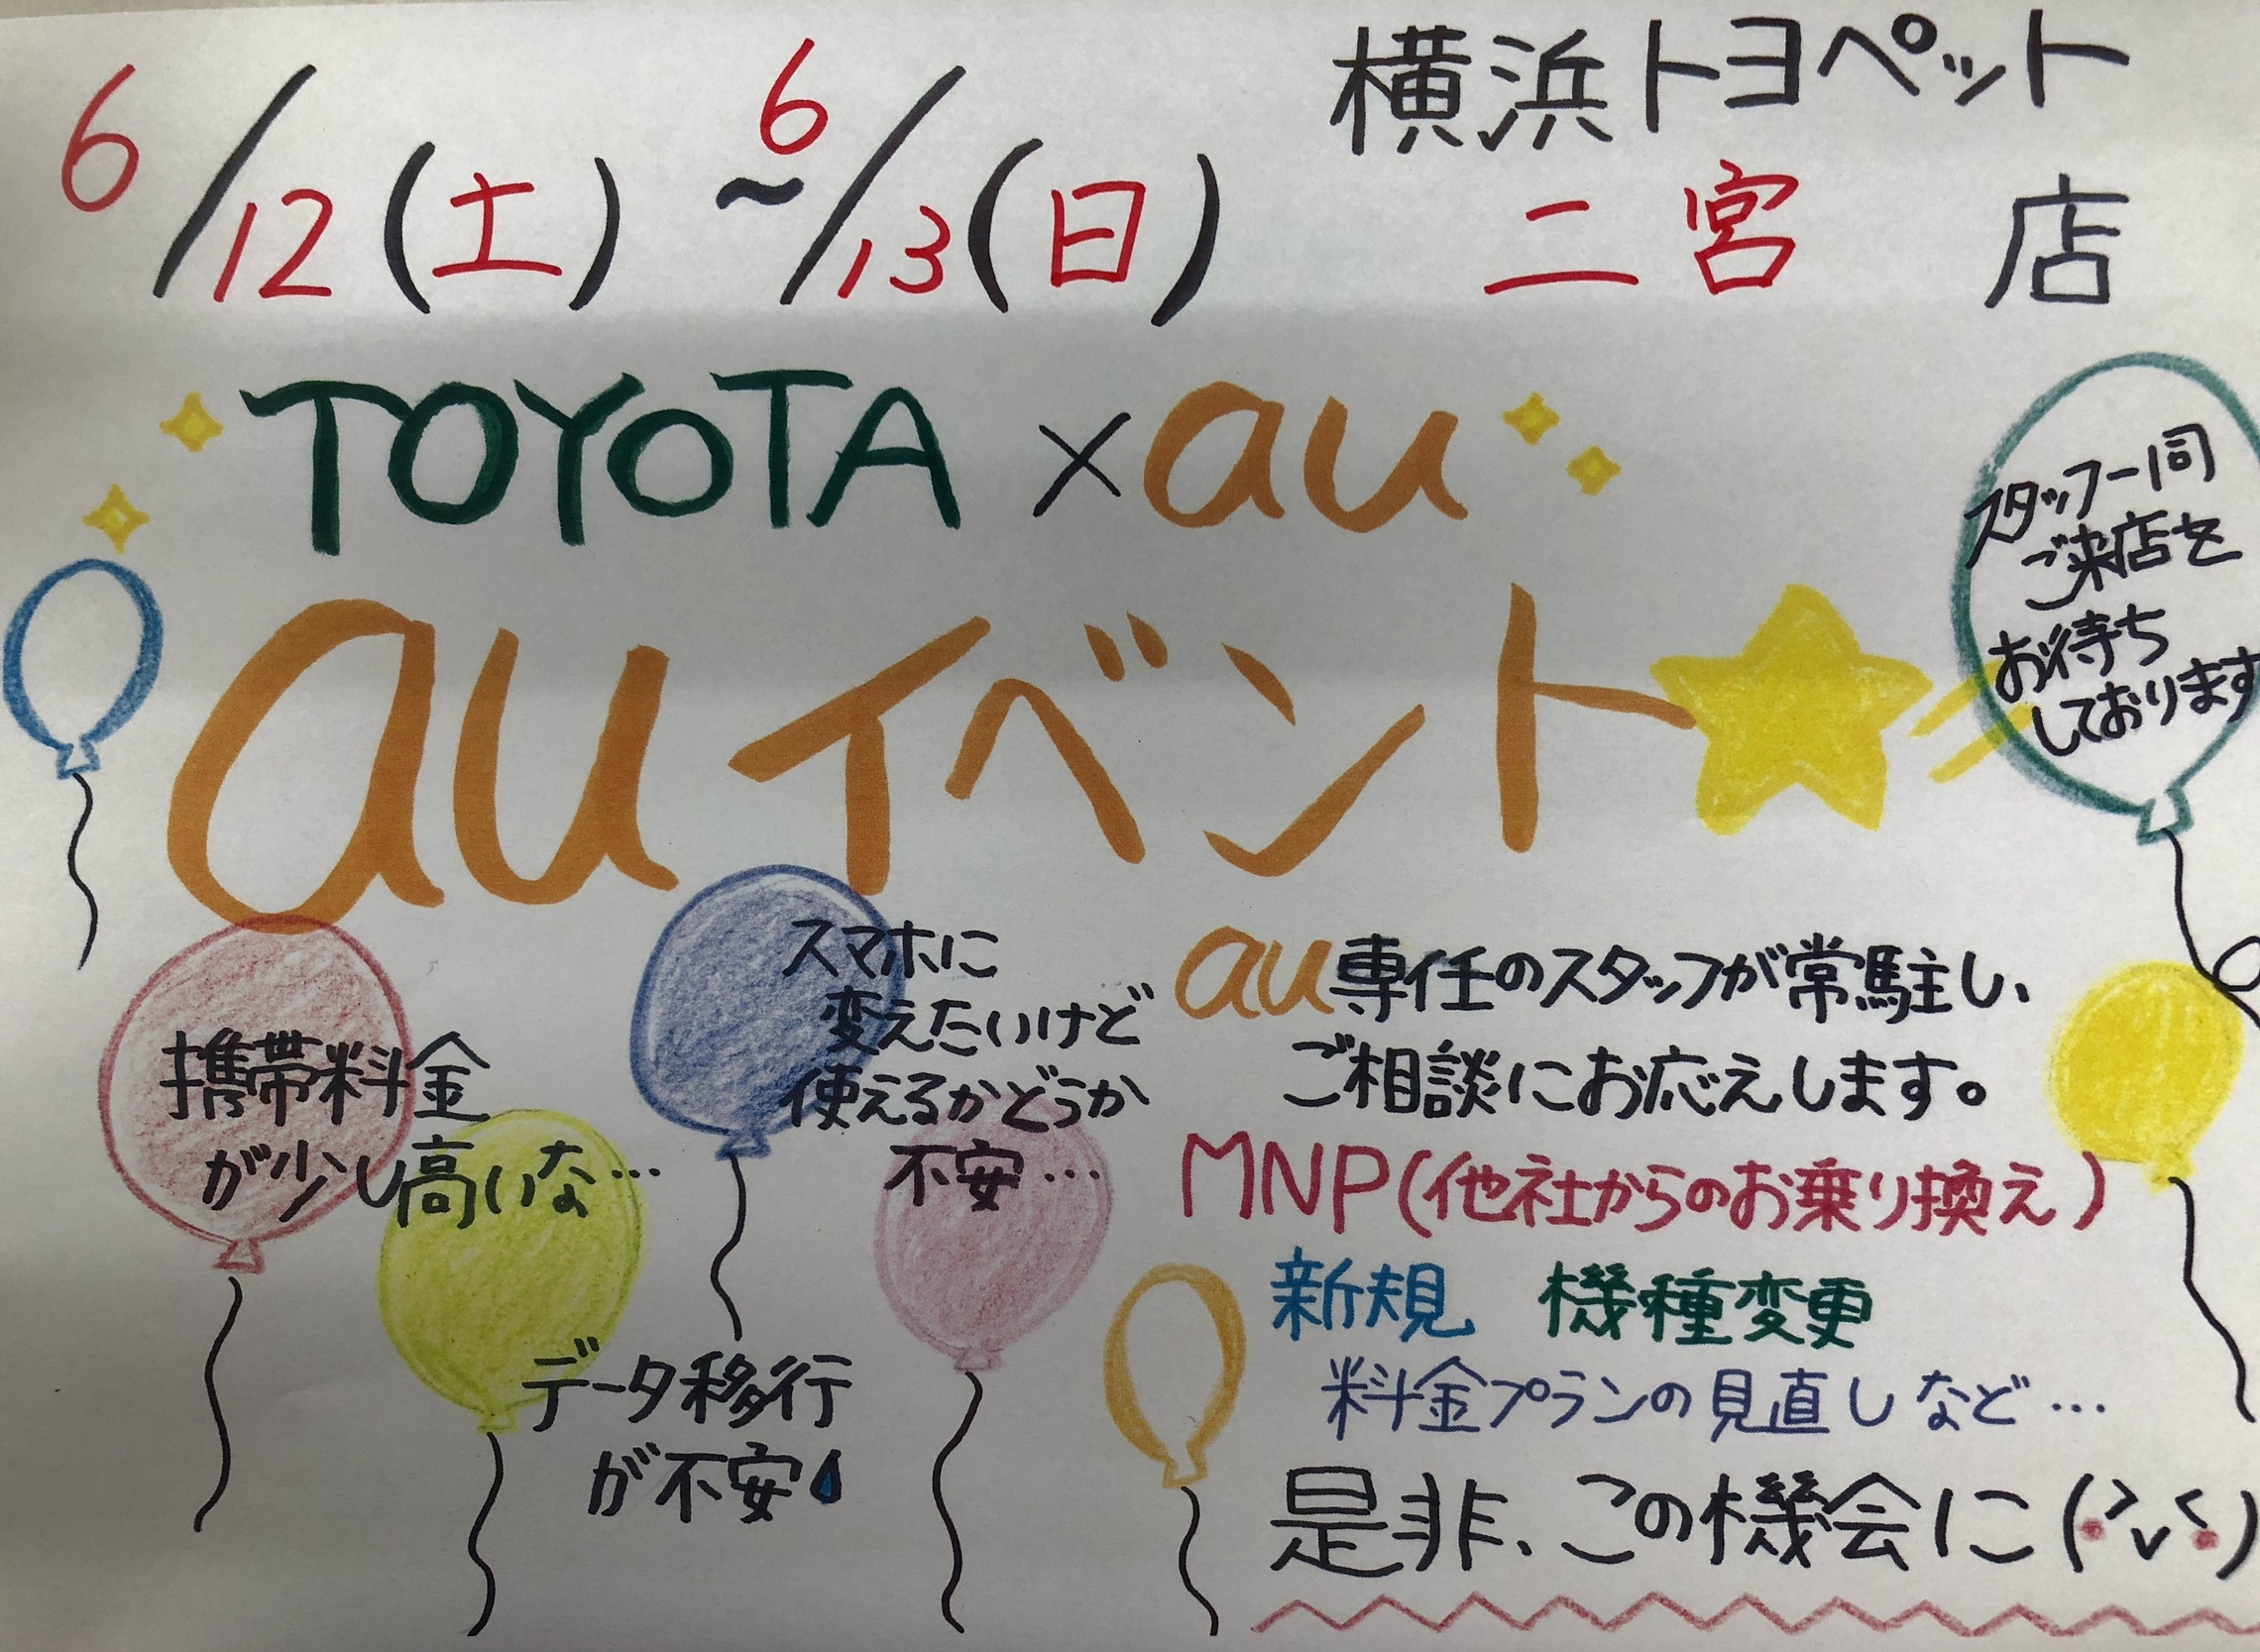 6/12(土) ~6/13(日)
横浜トヨペット
二宮 店
TOYOTA×au
auイベント
スタッフ一同
ご来店を
お待ち
しております
携帯料金
が少し高いな…
スマホに
変えたいけど
使えるかどうか
不安…
データ移行
が不安
au専任のスタッフが常駐し、
ご相談にお応えします。
MNP(他社からのお乗り換え)
新規 機種変更
料金プランの見直しなど…
是非、この機会に(>v<)